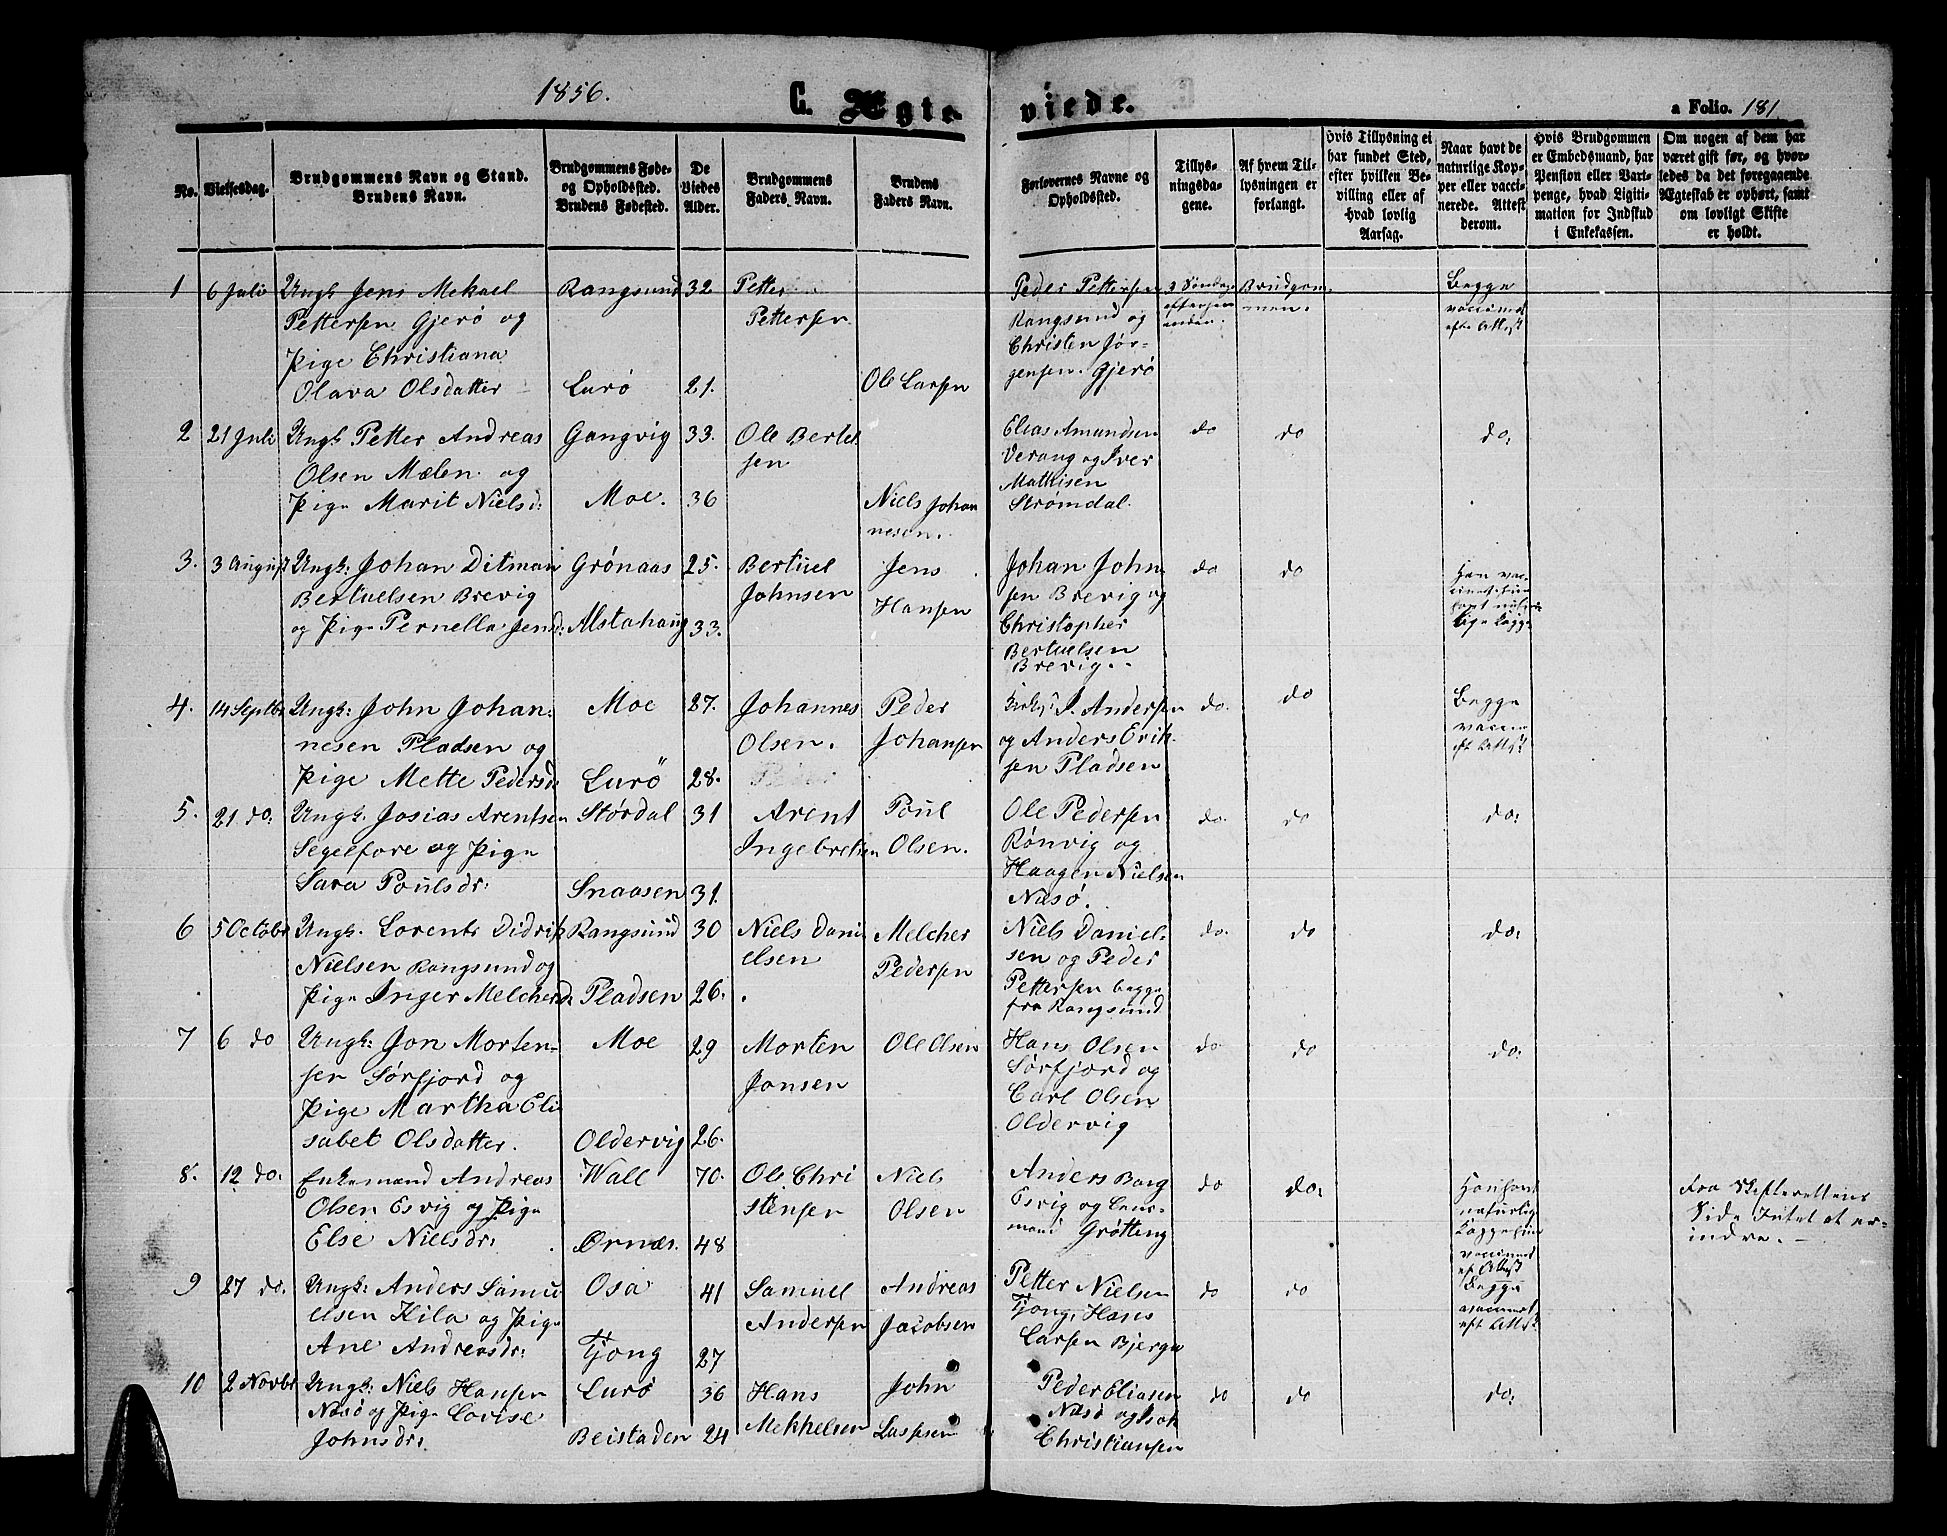 1856.
C. Ægteviede.
a Folio. 181.
No.
Vielsesdag.
Brudgommens Navn og Stand.
Brudens Navn.
Brudgommens Føde-
og Opholdssted.
Brudens Fødested.
De
Viedes
Alder.
Brudgommens
Faders Navn.
Brudens
Faders Navn.
Forlovernes Navne og
Opholdssted.
Tillys-
ningsda-
gene.
Af hvem Til-
lysningen er
forlangt.
Hvis Tillysning ei
har fundet Sted,
efter hvilken Be-
villing eller af
hvad lovlig
Aarsag.
Naar havt de
naturlige Kop-
per eller vacci-
nerede. Attest
derom.
Hvis Brudgommen
er Embedsmand, har
Pension eller Vart-
penge, hvad Ligiti-
mation for Indskud
i Enkekassen.
Om nogen af dem har
været gift før, og hvor-
ledes da det foregaaende
Ægteskab er ophørt, samt
om lovligt Skifte
er holdt.
1 6 Juli Ungk Jens Mekael Rangsund 32 Petter Peder Pettersen 3 Søndage Brudgom- Begge
Pettersen Gjerø og Pettersen Rangsund og men. 
Pige Christiana Christen Jør-
Olava Olsdatter Lurø 21. Ole Larsen gensen. Gjerø
2 21 Juli Ungk Petter Andreas Gangvig 33. Ole Bertel Elias Amundsen do do do.
Olsen Mælen og sen Verang og Iver
Pige Marit Nielsd: Moe. 36 Niels Johan Mathisen
nesen. Strømdal.
3. 3 August Ungk: Johan Ditman Grønaas 25. Bertuel Jens Johan John do do Han vac-
Bertuelsen Brevig Johnsen Hansen sen Brevig og
og Pige Pernella Jensd: Alstahaug 33. Christopher
Bertuelsen
Brevig.
4. 14 Septbr Ungk: John Johan- Moe 27. Johannes Peder J. Andersen do. do Begge
nesen Pladsen og Olsen. Johansen og Anders Erik-
Pige Mette Pedersd. Lurö 28. sen Pladsen
5. 21 do. Ungk. Josias Arentsen Størdal 31 Arent Poul Ole Pedersen do. do do.
Segelfore og Pige Ingebretsen Olsen. Rønvig og
Sara Poulsdr: Snaasen 31. Haagen Nielsen
Næsø.
6 5 Octobr Ungk. Lorents Didrik Rangsund 30 Niels Dani Melcher Niels Daniel- do. do do.
Nielsen Rangsund og elsen Pedersen sen og Peder
Pige Inger Melcherd Pladsen 26. Pettersen begge
fra Rangsund
7 6 do Ungk: Jon Morten- Moe 29 Morten Ole Olsen Hans Olsen do. do do.
sen Sørfjord og Jonsen Sørfjord og
Pige Martha Eli Carl Olsen
sabet Olsdatter. Oldervig 26. Oldervig
8. 12 do. Enkemand Andreas Wall 70. Ole Chri Niels Anders Borg do do. Han havt Fra Skifterettens
Olsen Esvig og Pige stensen Olsen Esvig og Lens- naturlige Side Intet at er-
Else Nielsdr: Ørnæs. 48 mand Grøtting indre.
vaccineret
9 27 do. Ungk: Anders Samu Osa 41 Samuel Andreas Petter Nielsen do do Begge
elsen Kila og Pige Andersen Jacobsen Tjong, Hans vaccineret
Ane Andreasdr: Tjong 27 Larsen Bjerga
10 2 Novbr Ungk: Niels Hansen Lurö 36 Hans John Peder Eliasen do do do.
Næsø og Pige Lovise Mekkelsen Næsø og Isak
Johnsdr. Beistaden 24 Christiansen